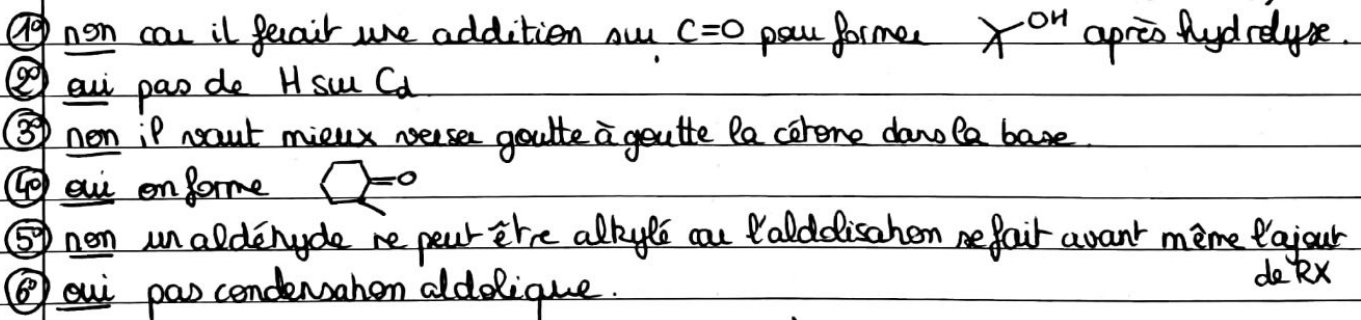 1°) non car il ferait une addition sur C=O pour former OH après hydrolyse.
2°) oui pas de H sur Cα
3°) non il vaut mieux verser goutte à goutte la cétone dans la base.
4°) oui on forme =O
5°) non un aldéhyde ne peut être alkylé car l'aldolisation se fait avant même l'ajout
de RX
6°) oui pas condensation aldolique.